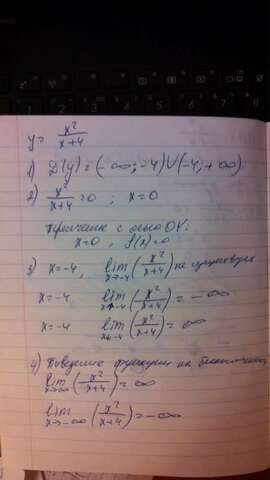 y= x²/(x+4)
1) D(y) = (-∞; -4) ∪ (-4; +∞)
2) x²/(x+4) = 0 ; x=0
с осью OY:
x=0 , f(x)=0
3) x=-4, lim x→-4 (x²/(x+4)) не
x=-4 lim x→-4 (x²/(x+4)) = -∞
x=-4 lim x→-4 (x²/(x+4)) = ∞
4) Поведение функции на бесконечности
lim x→∞ (x²/(x+4)) = ∞
lim x→-∞ (x²/(x+4)) = -∞